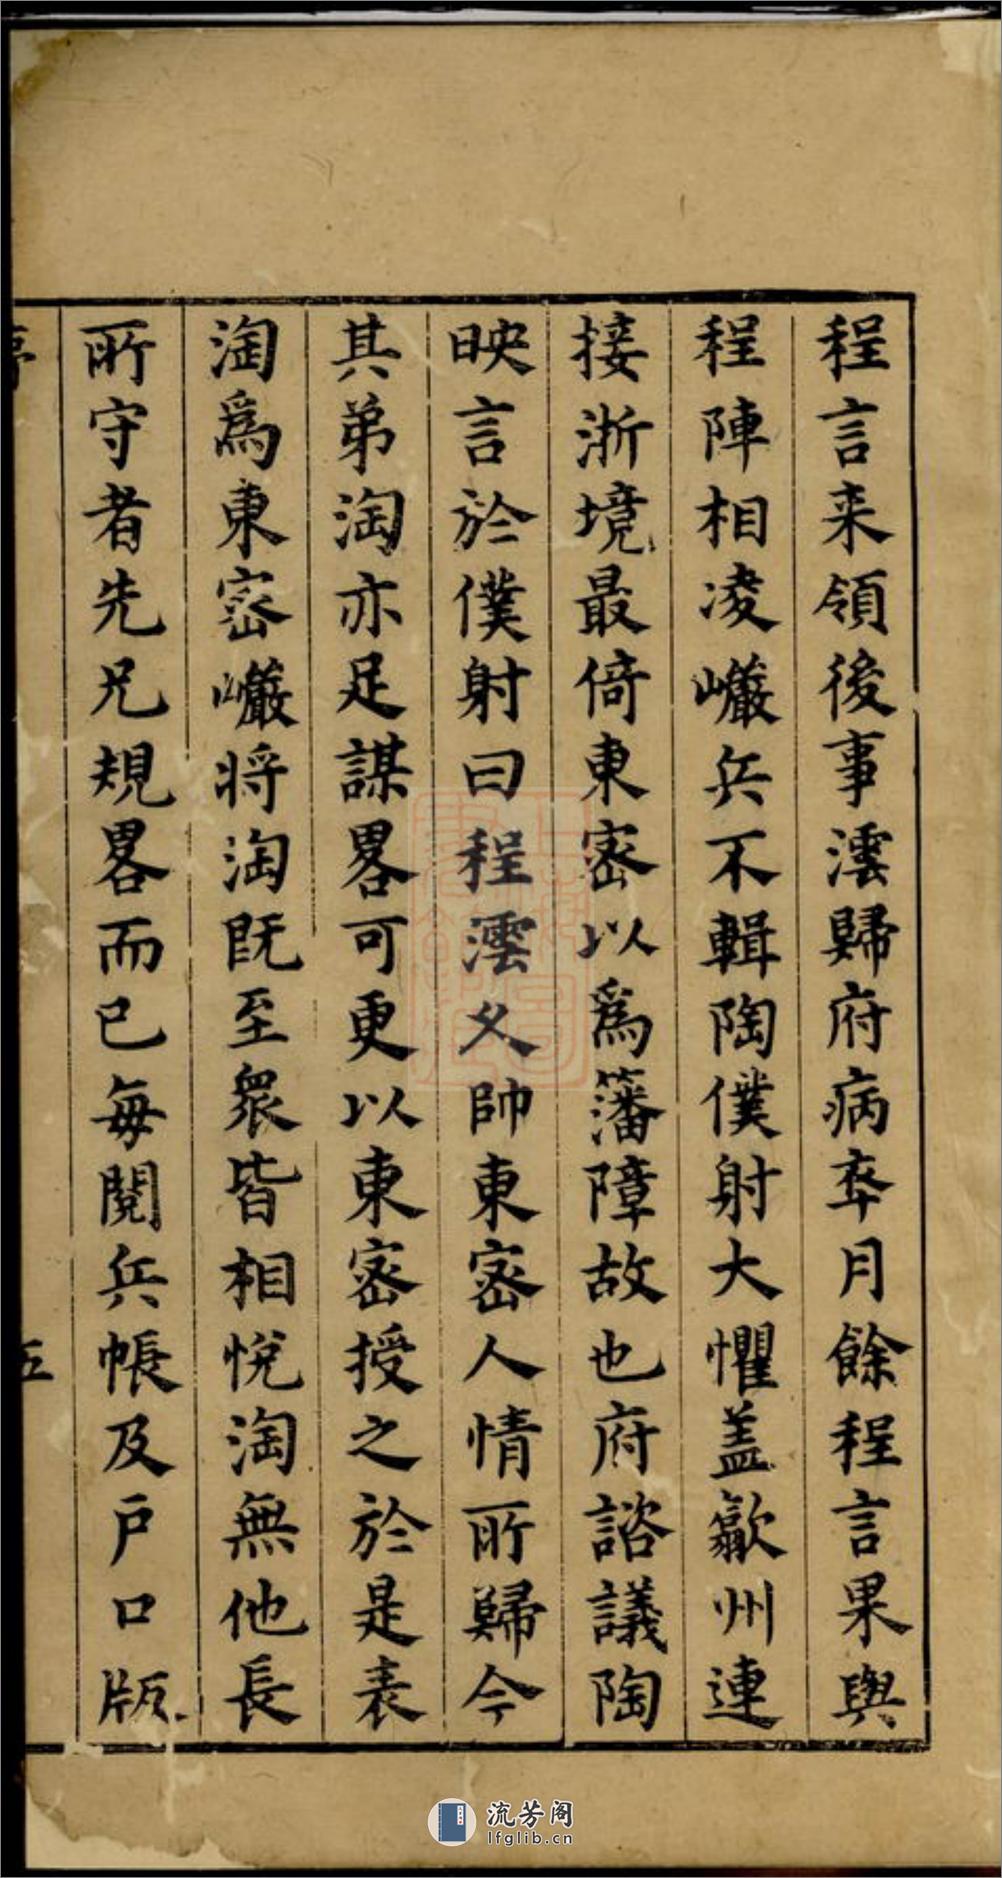 程言来領後事澐歸府病卒月餘程言果與
程陣相凌巘兵不輯陶僕射大懼盖歙州連
接浙境最倚東宻以爲藩障故也府諮議陶
映言於僕射曰程澐乆帥東宻人情所歸今
其弟淘亦足謀畧可更以東宻授之於是表
淘爲東宻巖将淘既至衆皆相悅淘無他長
所守者先兄規畧而已每閱兵帳及戶口版
五
流芳阁
lfglib.cn